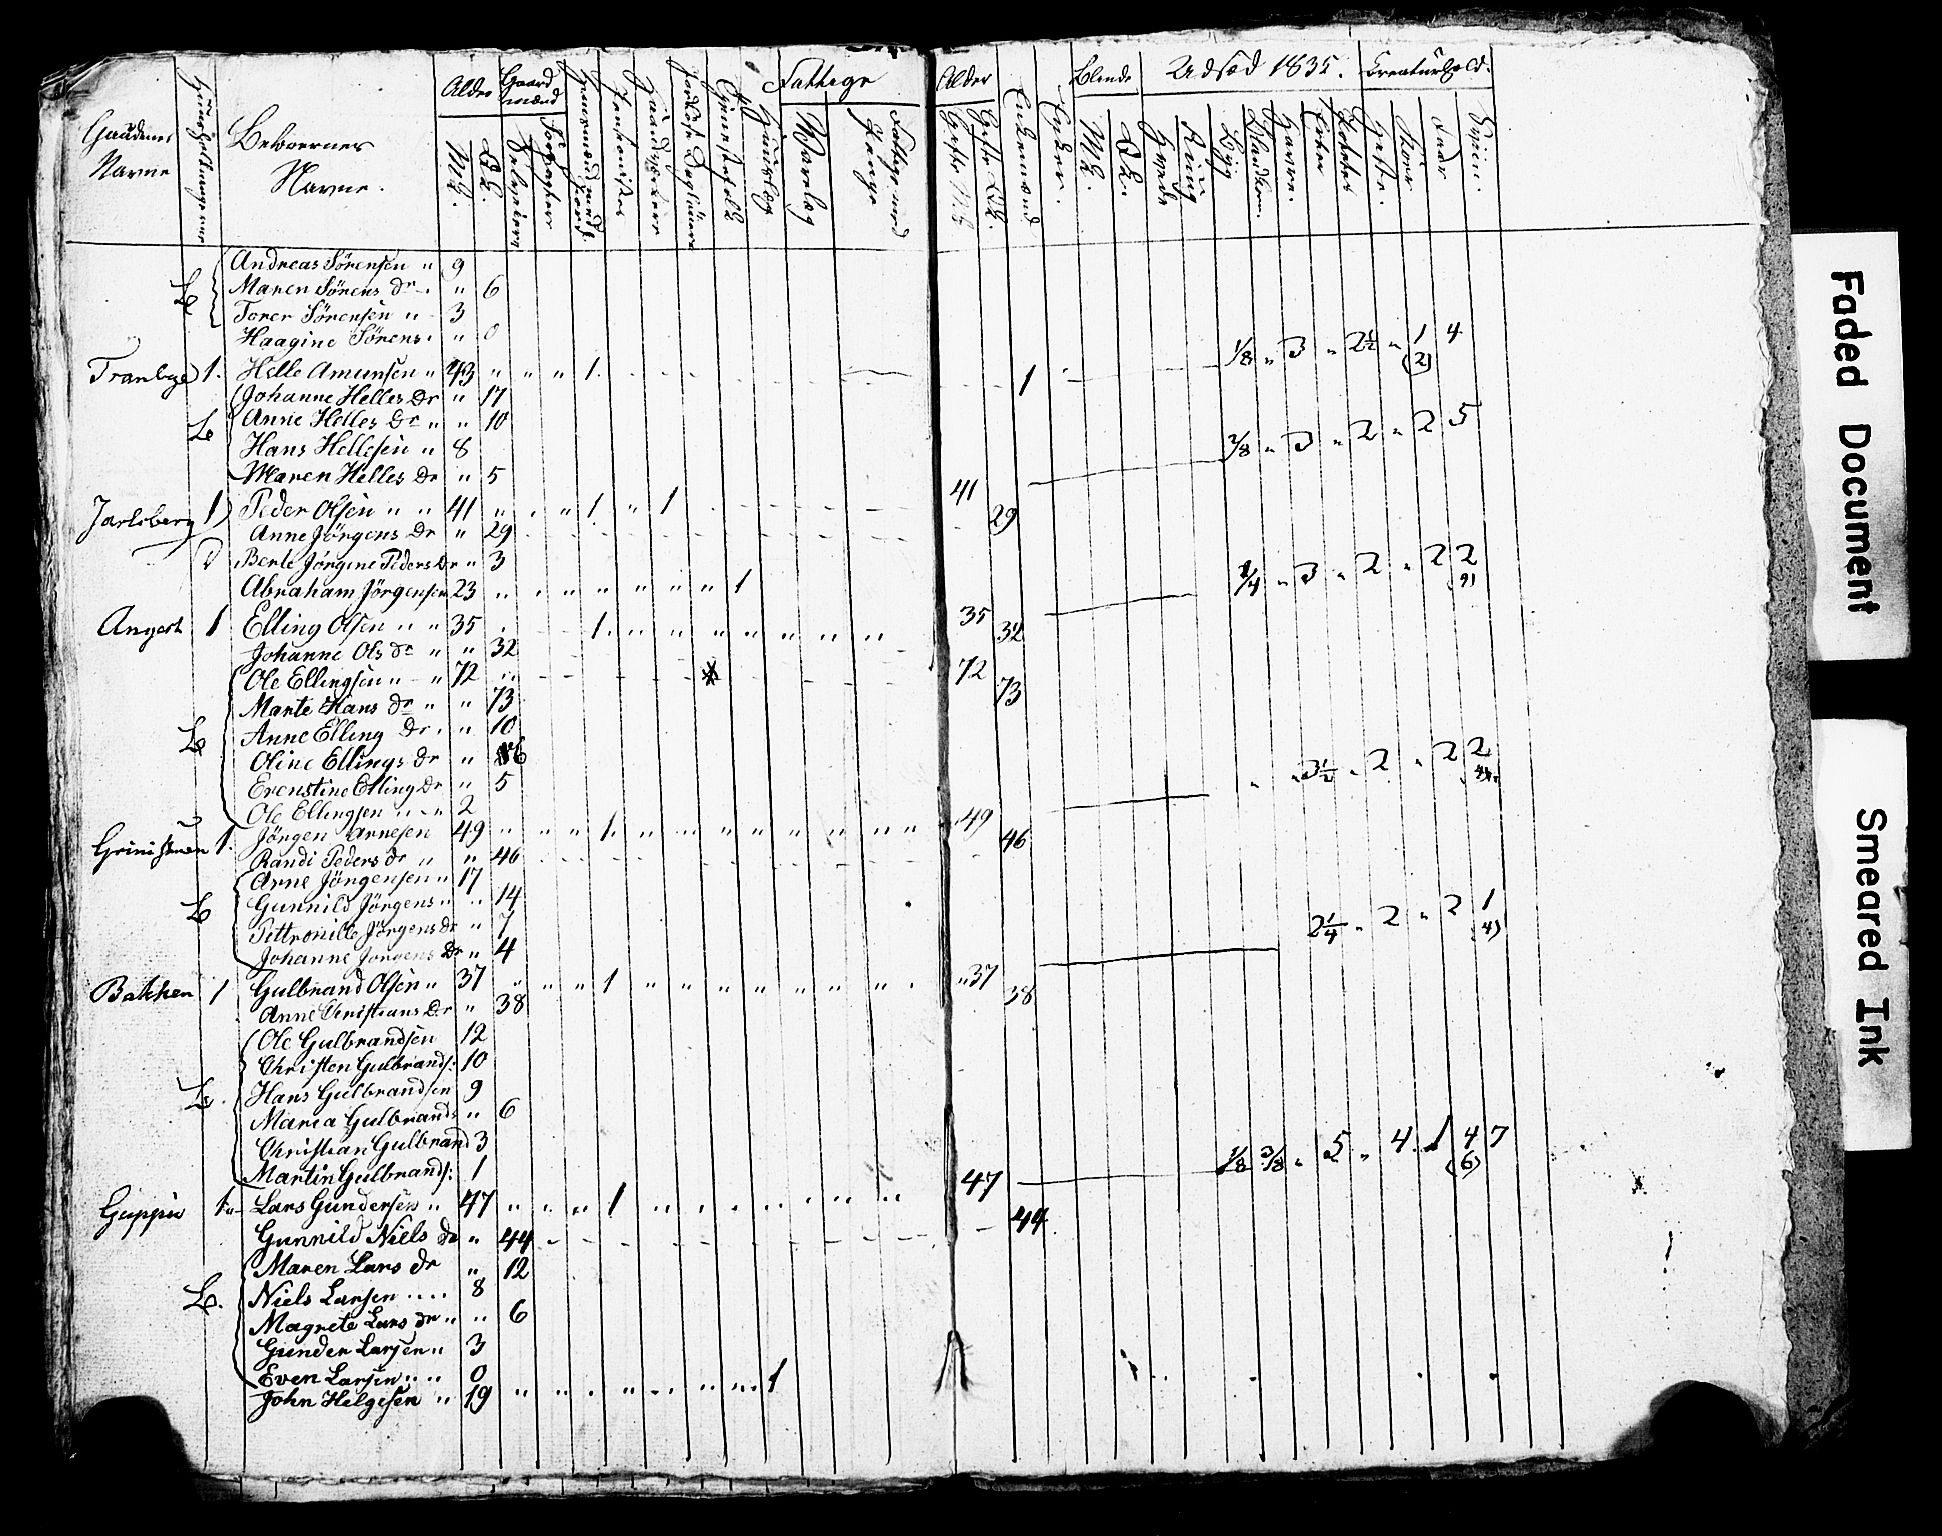 Gaardenes Navne
Huusholdningerne
Beboernes Navne.
Alder
M.K. Q.K.
Gaard mænd
Selveiere
Huusmænd med Jord
Pensionister
Fattige
Alder
Enkemænd
Enker.
Blinde
M.K. Q.K.
Udsæd 1835.
Hvede Rüng Byg Blandkorn Havre. Erter Poteter
Creaturhold.
Heste. Kiör Faar Sviin.
Andreas Sörensen " 9
Maren Sörens dr " 6
Torer Sörensen " 3
Haagine Sörens " 0
1/8 " 3 " 2½ " 1 (2) 4
Tranbye 1. Helle Amunsen " 43 " " " 1. 1
Johanne Helles Dr " 17
Anne Helles Dr " " 10
Hans Hellesen " 8
3/8 " 3 " 2 " 2 5
Maren Helles Dr " 5
Jarlsberg 1 Peder Olsen " " 41 " " " 1 " 1 41
Anne Jörgens Dr " 29 29
Berte Jörgine Peders Dr " 3
Abraham Jörgensen 23 " " " " " " " 1
1/4 " 3 " 2 " 2 2
Angest 1 Elling Olsen " " 35 1. " " " " " " " 35
Johanne Ols dr " " 32 32
Ole Ellingsen " " 72 72
Marte Hans dr " " 73 73
Anne Elling Dr. " 10
Oline Ellings Dr " 6
Erenstine Elling Dr " 5
" 3½ " 2 " 2 2
Ole Ellingsen " " 2
1. Jörgen Arnesen 49 " " " 1. " " " " " " " " 49
Randi Peders dr " " 46 46
Arne Jörgensen " 17
Gunnild Jörgens " " 14
Pettronille Jörgens dr " 7
2¼ " 2 " 2 1 (4)
Johanne Jörgens Dr " 4
Bakken 1 Gulbrand Olsen " 37 " " " 1 " " " " " " " 37
Anne Christians Dr " 38 38
Ole Gulbrandsen 12
Christen Gulbrands: 10
Hans Gulbrandsen 9
Maria Gulbrands " 6
Christian Gulbrand 3
Martin Gulbrands: 1
1/8 3/8 " 5 " 4 1 4 (6) 7
1 Lars Gundersen " 47 " " " 1 " " " " " " 47
Gunnild Niels Dr " 44 44
Maren Lars dr " 12
Niels Larsen 8
Magrete Lars dr " " 6
Gunder Larsen " 3
Even Larsen " " 0
John Helgesen " 19 " " " " " " " 1
Faded Document
Smeared Ink